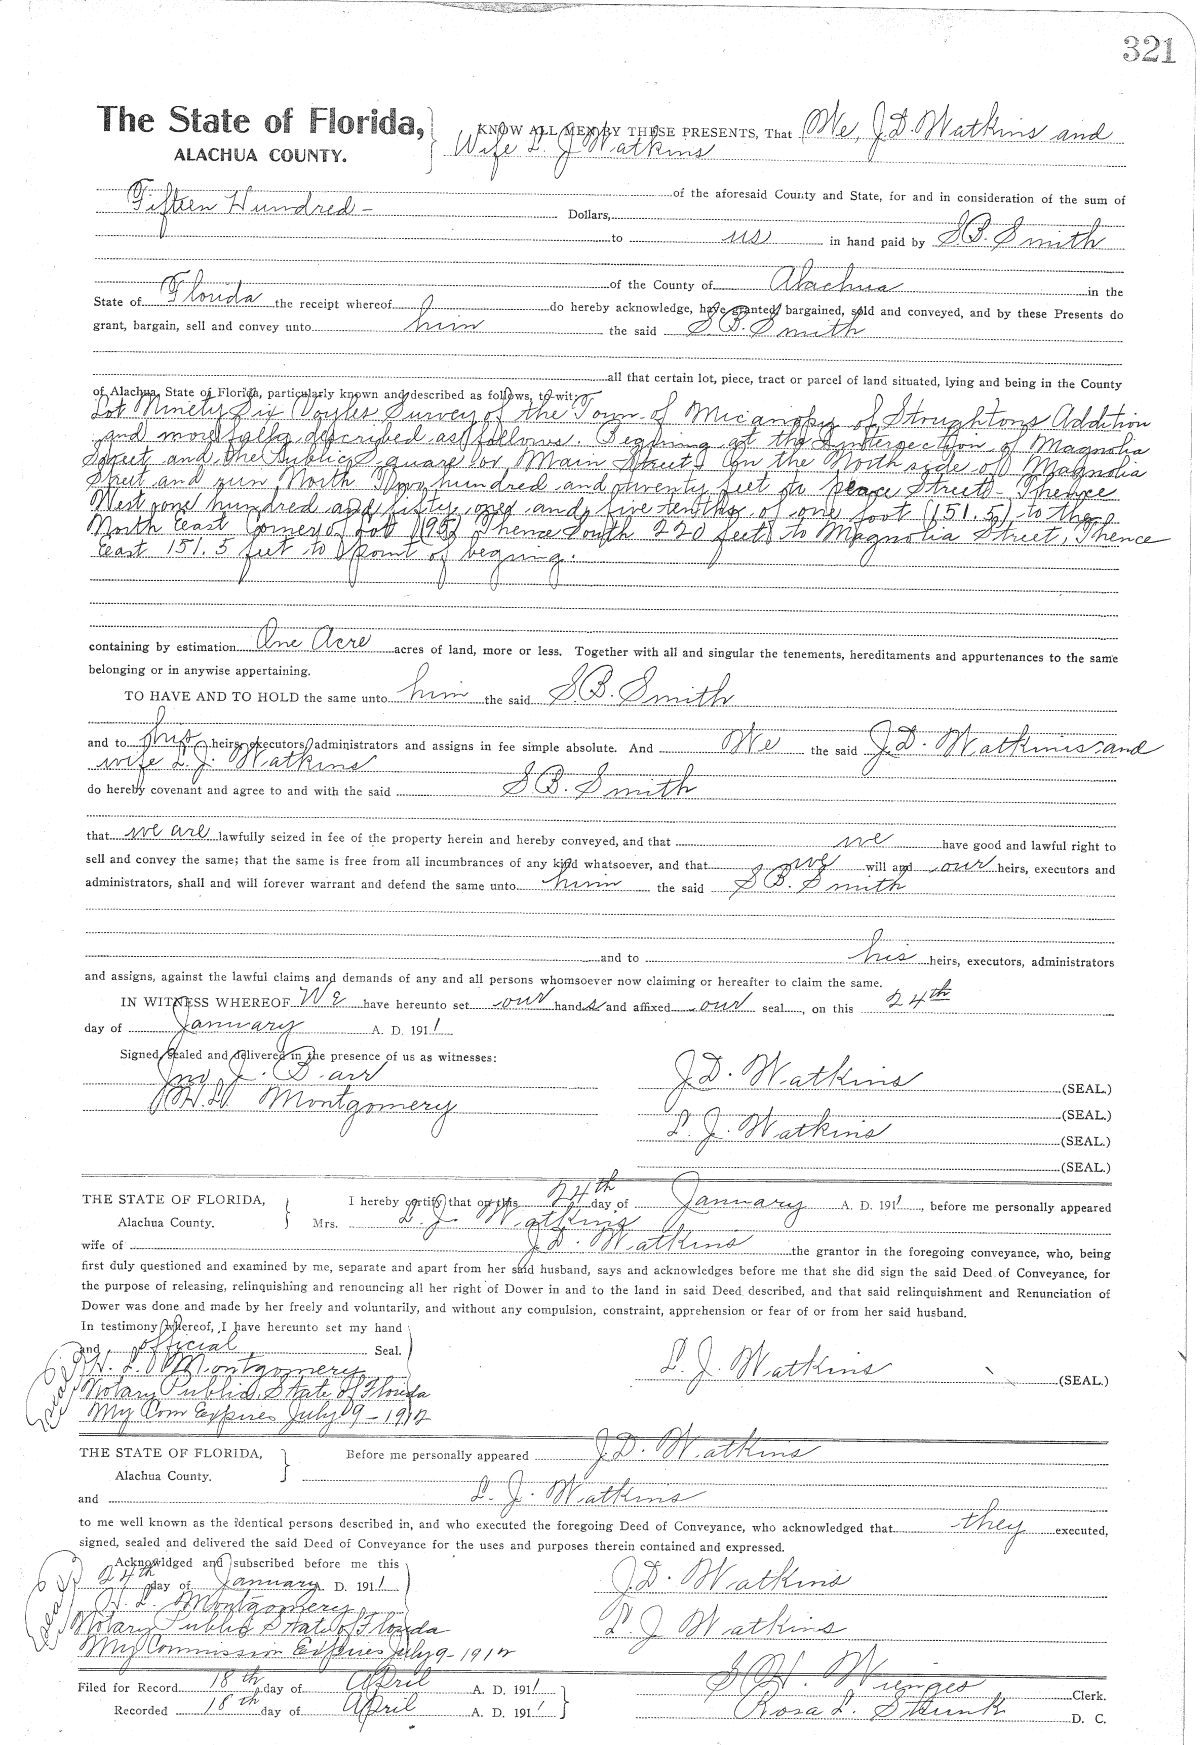 321
The State of Florida, KNOW ALL MEN BY THESE PRESENTS, That We, J.D. Watkins and
ALACHUA COUNTY. Wife L. J Watkins
of the aforesaid County and State, for and in consideration of the sum of
Fifteen Hundred- Dollars,
to us in hand paid by S.B. Smith
of the County of Alachua in the
State of Florida the receipt whereof I do hereby acknowledge, have granted, bargained, sold and conveyed, and by these Presents do
grant, bargain, sell and convey unto him the said S.B. Smith
all that certain lot, piece, tract or parcel of land situated, lying and being in the County
of Alachua, State of Florida, particularly known and described as follows, to-wit:
Lot Ninety Six Voyles Survey of the Town of Micanopy of Stoughtons Addition
and more fully described as follows. Begining at the Intersection of Magnolia
Street and the Public Square or Main Street, On the North side of Magnolia
Street and run North Two hundred and twenty feet to peace Street- Thence
West one hundred and fifty one and five tenths of one foot (151.5) to the
North East Corner of Lot (95) Thence South 220 feet to Magnolia Street, Thence
East 151.5 feet to point of begning.
containing by estimation One Acre acres of land, more or less. Together with all and singular the tenements, hereditaments and appurtenances to the same
belonging or in anywise appertaining.
TO HAVE AND TO HOLD the same unto him the said S.B. Smith
and to his heirs, executors, administrators and assigns in fee simple absolute. And We the said J.D. Watkins and
wife L.J. Watkins
do hereby covenant and agree to and with the said S.B. Smith
that we are lawfully seized in fee of the property herein and hereby conveyed, and that we have good and lawful right to
sell and convey the same; that the same is free from all incumbrances of any kind whatsoever, and that we will and our heirs, executors and
administrators, shall and will forever warrant and defend the same unto him the said S B. Smith
and to his heirs, executors, administrators
and assigns, against the lawful claims and demands of any and all persons whomsoever now claiming or hereafter to claim the same.
IN WITNESS WHEREOF We have hereunto set our hands and affixed our seal, on this 24th
day of January A. D. 1911
Signed, sealed and delivered in the presence of us as witnesses:
Jno J. Barr J.D. Watkins (SEAL.)
H.L. Montgomery (SEAL.)
L. J. Watkins (SEAL.)
(SEAL.)
THE STATE OF FLORIDA, I hereby certify that on this 24th day of January A. D. 1911, before me personally appeared
Alachua County. Mrs. L. J. Watkins
wife of J.D. Watkins the grantor in the foregoing conveyance, who, being
first duly questioned and examined by me, separate and apart from her said husband, says and acknowledges before me that she did sign the said Deed of Conveyance, for
the purpose of releasing, relinquishing and renouncing all her right of Dower in and to the land in said Deed described, and that said relinquishment and Renunciation of
Dower was done and made by her freely and voluntarily, and without any compulsion, constraint, apprehension or fear of or from her said husband.
In testimony whereof, I have hereunto set my hand
and official Seal.
H. L. Montgomery L. J. Watkins (SEAL.)
Notary Public, State of Florida
My Com Expires July 9-1912
THE STATE OF FLORIDA, Before me personally appeared J.D. Watkins
Alachua County.
and L. J. Watkins
to me well known as the identical persons described in, and who executed the foregoing Deed of Conveyance, who acknowledged that they executed,
signed, sealed and delivered the said Deed of Conveyance for the uses and purposes therein contained and expressed.
Acknowldged and subscribed before me this
24th day of January A. D. 1911 J.D. Watkins
H. L. Montgomery
Notary Public State of Florida L. J Watkins
My Commission Expires July 9-1912
Filed for Record 18th day of April A. D. 1911 S H. Wienges Clerk.
Recorded 18th day of April A. D. 1911 Rosa L. D. C.